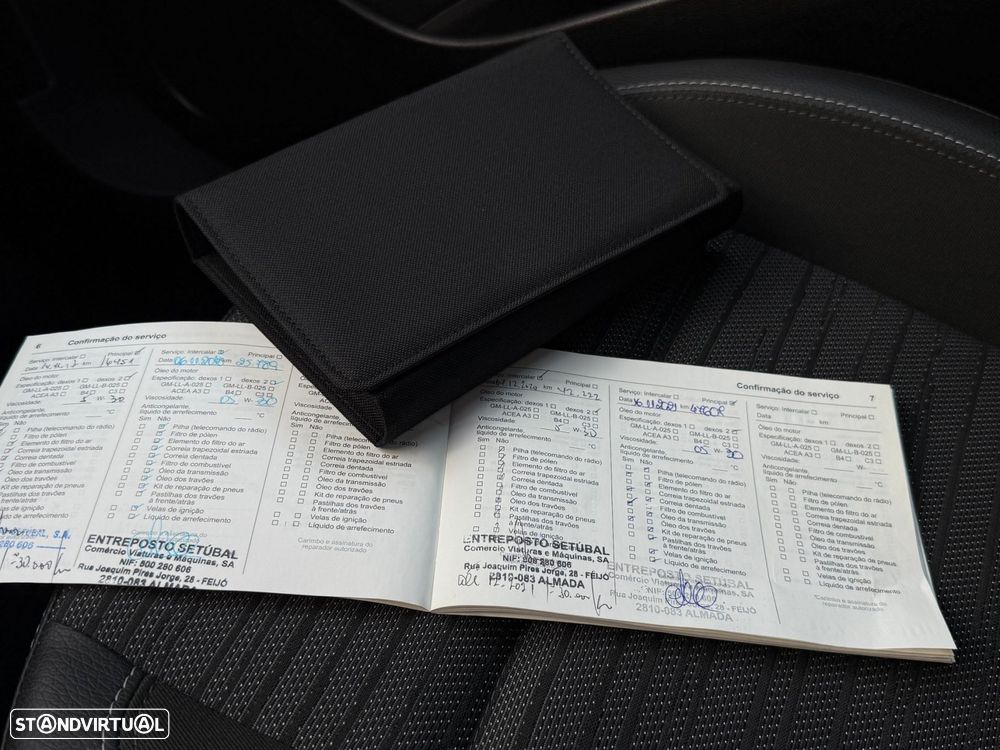 6 Confirmação do serviço
Serviço: Intercalar Principal
km 16451
Óleo do motor
Especificação: dexos 1 dexos 2
GM-LL-A-025 GM-LL-B-025
ACEA A3 B4 C3
Viscosidade: 5 W- 30
Anticongelante,
líquido de arrefecimento °C
Sim Não
Pilha (telecomando do rádio)
Filtro de pólen
Elemento do filtro do ar
Correia trapezoidal estriada
Correia dentada
Filtro de combustível
Óleo dos travões
Óleo da transmissão
Kit de reparação de pneus
Pastilhas dos travões
à frente/atrás
Velas de ignição
Líquido de arrefecimento
280 606
Serviço: Intercalar Principal
Data km 25.789
Óleo do motor
Especificação: dexos 1 dexos 2
GM-LL-A-025 GM-LL-B-025
ACEA A3 B4 C3
Viscosidade: 05 W- 30
Anticongelante,
líquido de arrefecimento
Sim Não
Pilha (telecomando do rádio)
Filtro de pólen
Elemento do filtro do ar
Correia trapezoidal estriada
Correia dentada
Filtro de combustível
Óleo dos travões
Óleo da transmissão
Kit de reparação de pneus
Pastilhas dos travões
à frente/atrás
Velas de ignição
Líquido de arrefecimento
ENTREPOSTO SETÚBAL
Comércio Viaturas e Máquinas, SA
NIF: 500 280 606
Rua Joaquim Pires Jorge, 28 - FEIJÓ
2810-083 ALMADA
Carimbo e assinatura do
reparador autorizado
Confirmação do serviço 7
Principal
km 42.222
dexos 2
GM-LL-A-025 GM-LL-B-025
ACEA A3 B4 C3
Viscosidade: 5 W- 30
Anticongelante,
líquido de arrefecimento °C
Sim Não
Pilha (telecomando do rádio)
Filtro de pólen
Elemento do filtro do ar
Correia trapezoidal estriada
Correia dentada
Filtro de combustível
Óleo dos travões
Óleo da transmissão
Kit de reparação de pneus
Pastilhas dos travões
à frente/atrás
Velas de ignição
Líquido de arrefecimento
ENTREPOSTO SETÚBAL
Comércio Viaturas e Máquinas, SA
NIF: 500 280 606
Rua Joaquim Pires Jorge, 28 - FEIJÓ
2810-083 ALMADA
Serviço: Intercalar Principal
Data km
Óleo do motor
Especificação: dexos 1 dexos 2
GM-LL-A-025 GM-LL-B-025
ACEA A3 B4 C3
Viscosidade: 05 W- 30
Anticongelante,
líquido de arrefecimento °C
Sim Não
Pilha (telecomando do rádio)
Filtro de pólen
Elemento do filtro do ar
Correia trapezoidal estriada
Correia dentada
Filtro de combustível
Óleo dos travões
Óleo da transmissão
Kit de reparação de pneus
Pastilhas dos travões
à frente/atrás
Velas de ignição
Líquido de arrefecimento
ENTREPOSTO SETÚBAL
Rua Joaquim 28 - FEIJÓ
2810-083 ALMADA
Serviço: Intercalar Principal
Data km
Óleo do motor
Especificação: dexos 1 dexos 2
GM-LL-A-025 GM-LL-B-025
ACEA A3 B4 C3
Viscosidade: W-
Anticongelante,
líquido de arrefecimento °C
Sim Não
Pilha (telecomando do rádio)
Filtro de pólen
Elemento do filtro do ar
Correia trapezoidal estriada
Correia dentada
Filtro de combustível
Óleo dos travões
Óleo da transmissão
Kit de reparação de pneus
Pastilhas dos travões
à frente/atrás
Velas de ignição
Líquido de arrefecimento
*Carimbo e assinatura do
reparador autorizado
STANDVIRTUAL